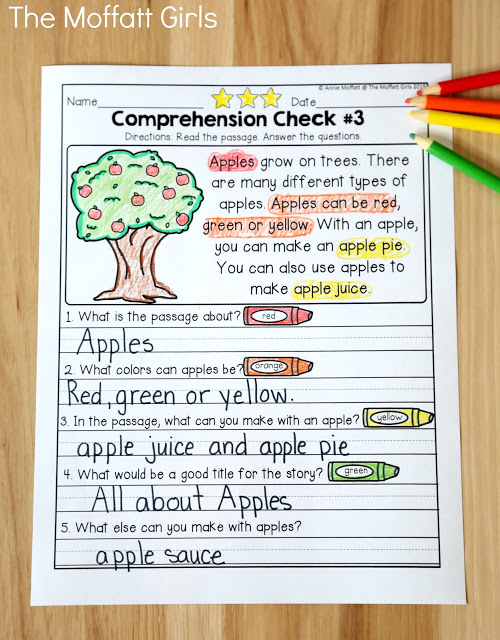 The Moffatt Girls
© Annie Moffett @ The Moffatt Girls 2015
Name Date
Comprehension Check #3
Directions: Read the passage. Answer the questions.
Apples grow on trees. There
are many different types of
apples. Apples can be red,
green or yellow. With an apple,
you can make an apple pie.
You can also use apples to
make apple juice.
1. What is the passage about? red
Apples
2. What colors can apples be? orange
Red, green or yellow.
3. In the passage, what can you make with an apple? yellow
apple juice and apple pie
4. What would be a good title for the story? green
All about Apples
5. What else can you make with apples?
apple sauce